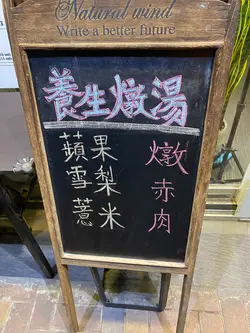 Natural wind
Write a better future
養生燉湯
蘋果
雪梨
薏米
燉赤肉